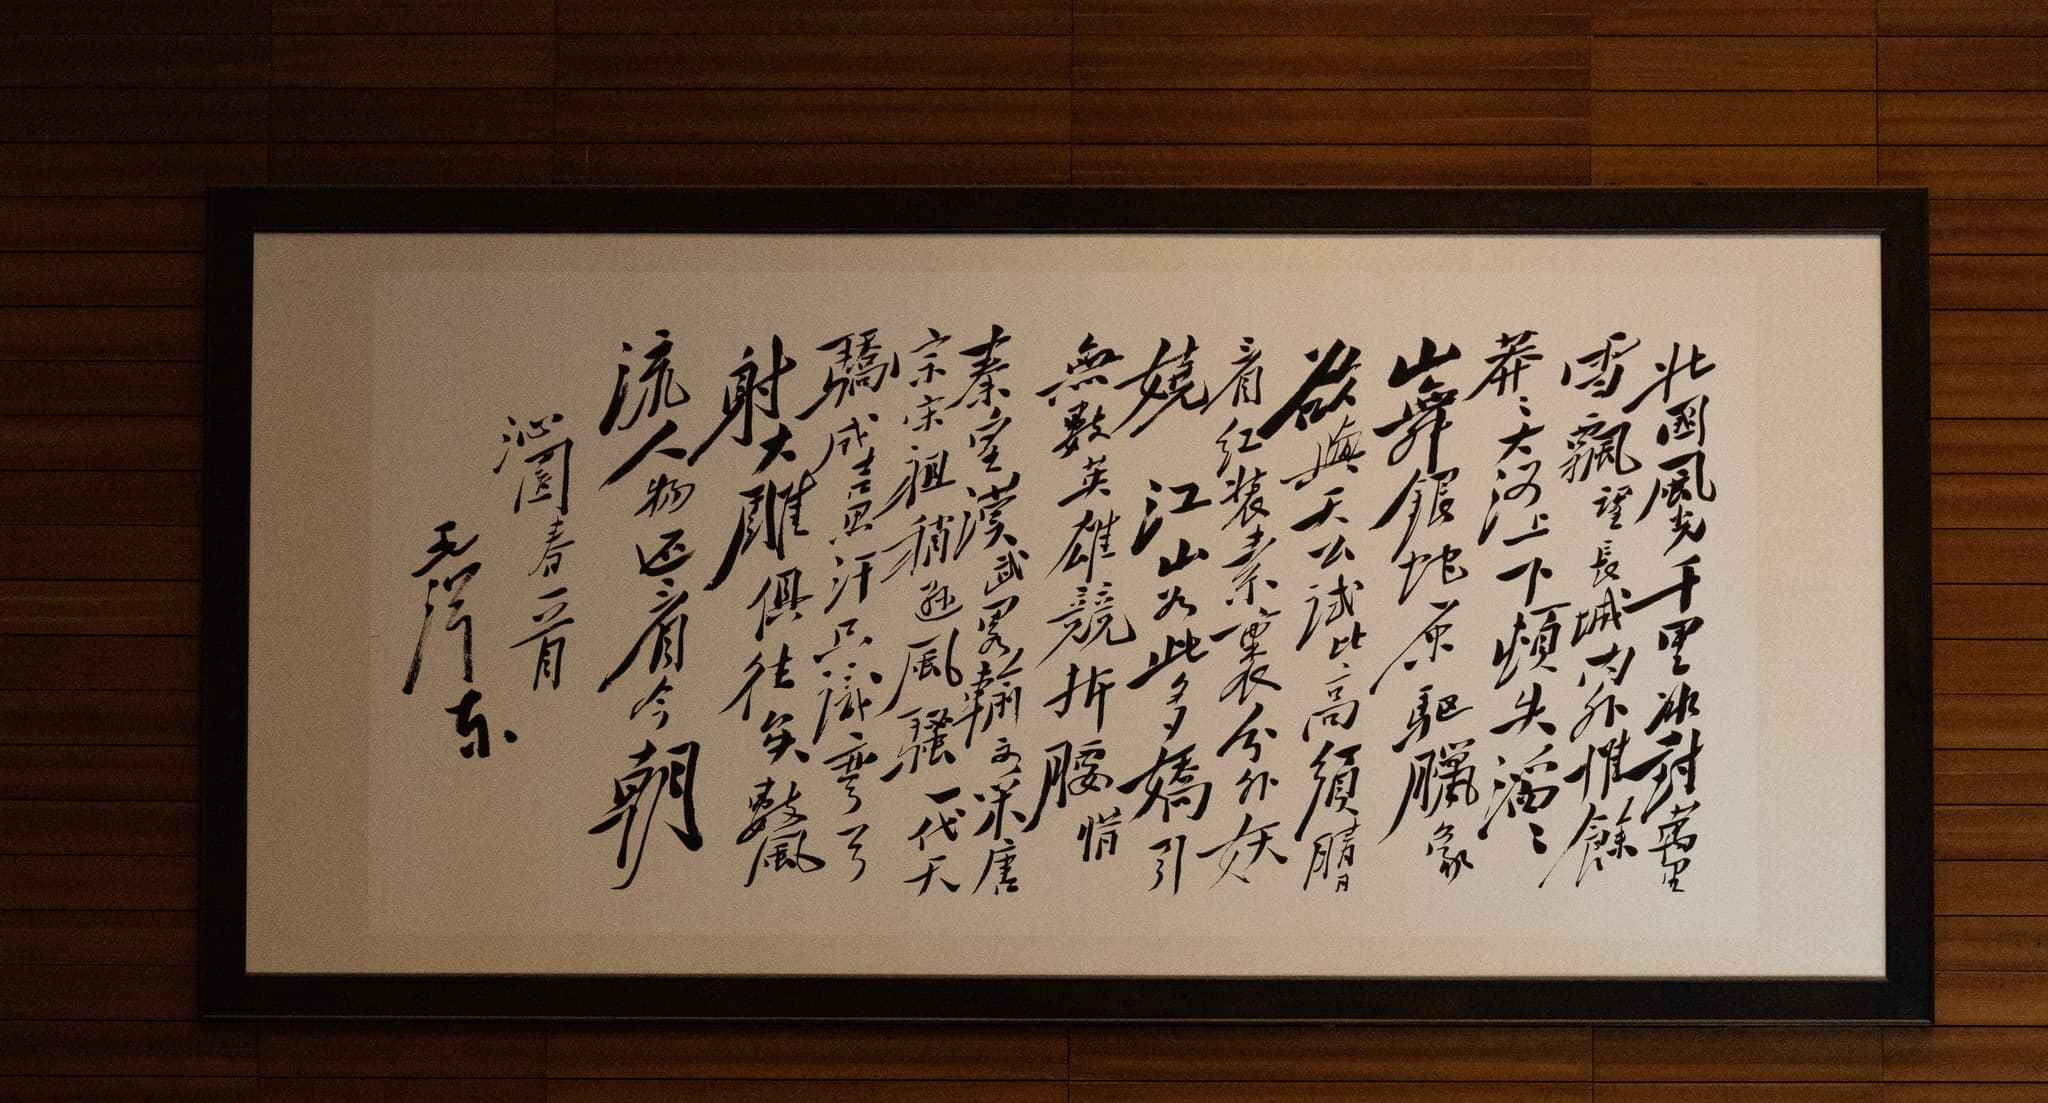 北国風光千里冰封萬里
雪飄望長城内外惟餘
莽〻大河上下頓失滔〻
山舞銀蛇原驅臘象
欲與天公試比高須晴日
看红装素裹分外妖
嬈 江山如此多嬌引
無數英雄競折腰惜
秦皇漢武略輸文采唐
宗宋祖稍遜風騷一代天
驕成吉思汗只識彎弓
射大雕俱往矣數風
流人物还看今朝
沁園春一首
毛澤东